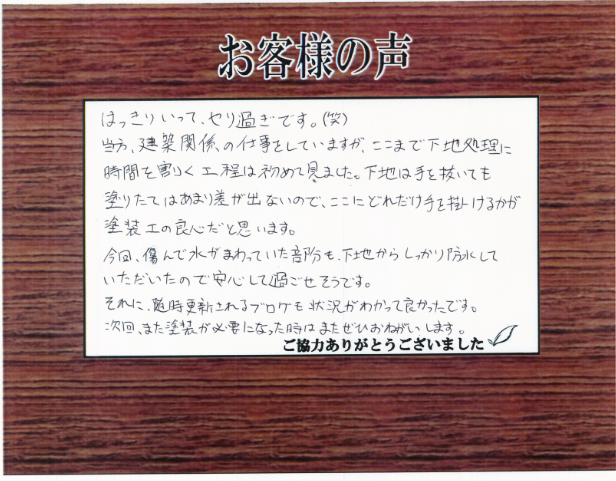 お客様の声
はっきりいって、やり過ぎです。(笑)
当方、建築関係の仕事をしていますが、ここまで下地処理に
時間を割く工程は初めて見ました。下地は手を抜いても
塗りたてはあまり差が出ないので、ここにどれだけ手を掛けるかが
塗装工の良心だと思います。
今回、傷んで水がまわっていた部分も、下地からしっかり防水して
いただいたので安心して過ごせそうです。
それに、随時更新されるブログも状況がわかって良かったです。
次回、また塗装が必要になった時はまたぜひおねがいします。
ご協力ありがとうございました